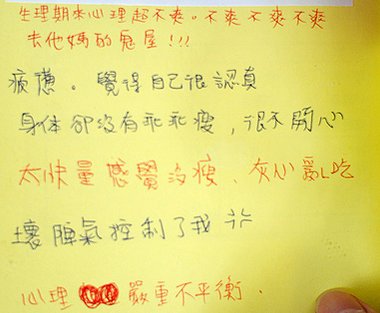 生理期來心理超不爽。不爽不爽不爽
去他媽的鬼屋!!!
疲憊。覺得自己很認真
身体卻沒有乖乖瘦,很不開心
太快量感覺沒瘦、灰心亂吃
壞脾氣控制了我
心理 嚴重不平衡.